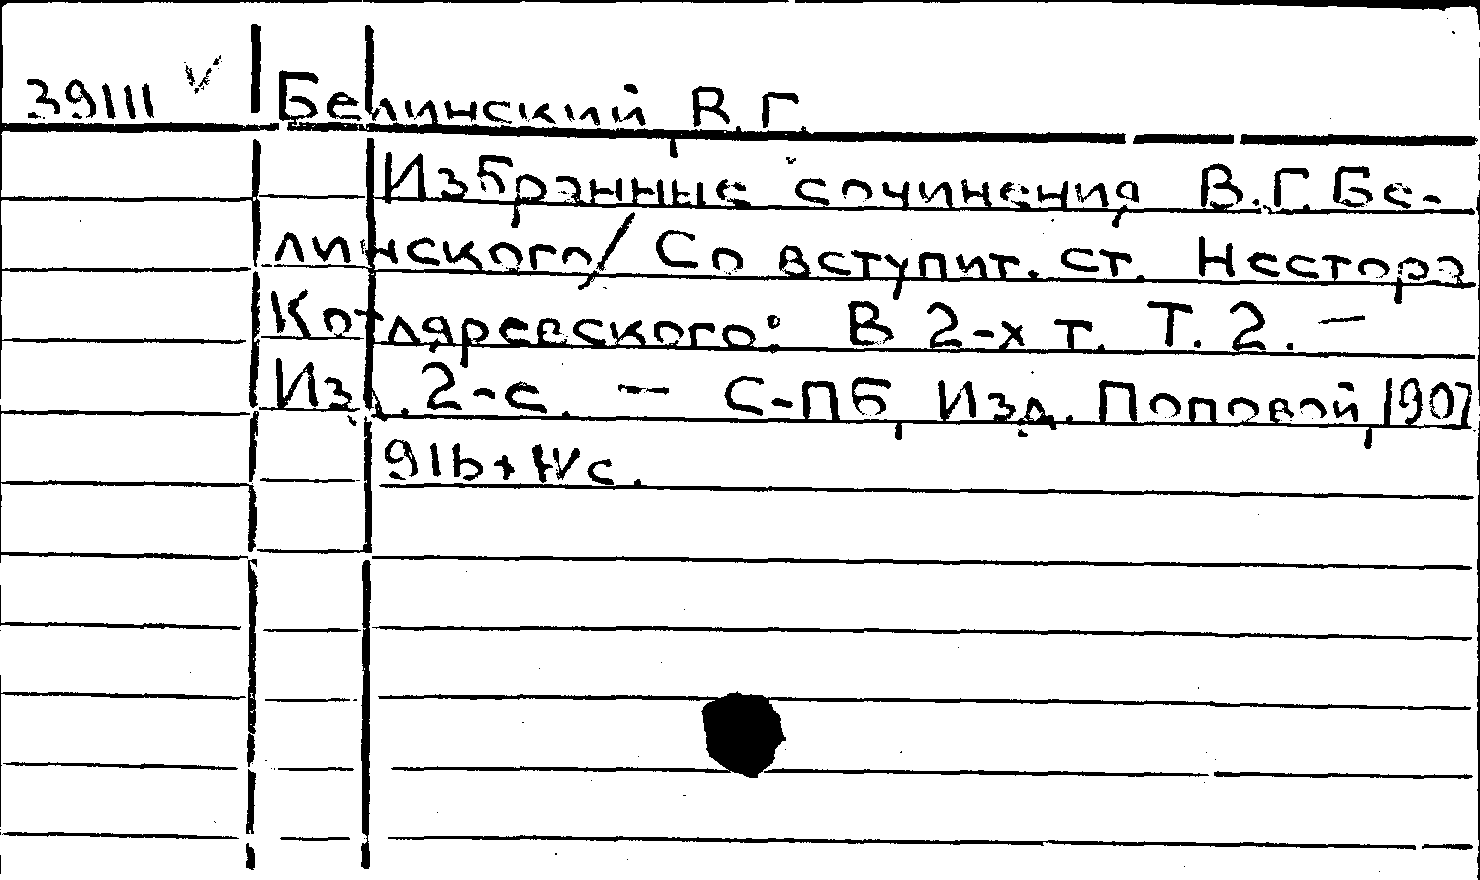 39111 V Белинский, В.Г.
Избранные сочинения В.Г.Бе-
линского/ Со вступит. ст. Нестора
Котляревского: В 2-х т. Т. 2. —
Изд. 2-е. — С-ПБ, Изд. Поповой, 1907
916+IVс.